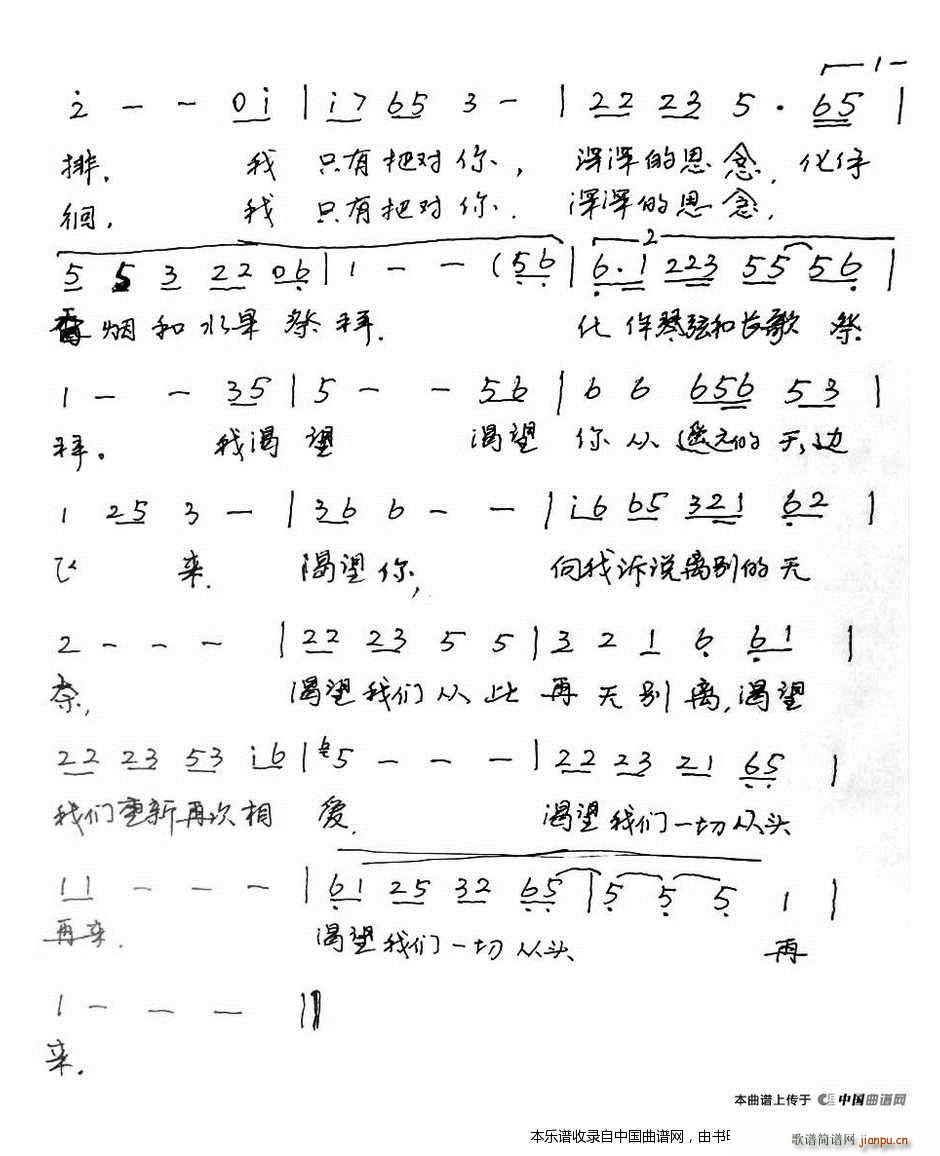 1-
i - - 0i | i7 65 3 - | 22 23 5 · 65 |
排. 我 只有把对你, 深深的思念, 化作
徊. 我 只有把对你. 深深的思念.
2
5 5 3 22 06 | 1 - - (56) | 6·1 223 55 56 |
香烟和水果祭拜. 化作琴弦和长歌 祭
1 - - 35 | 5 - - 56 | 6 6 656 53 |
拜。 我渴望 渴望 你从遥远的天边
1 25 3 - | 36 6 - - | i6 65 321 62 |
飞 来. 渴望你, 向我诉说离别的无
2 - - - | 22 23 5 5 | 3 2 1 6 61 |
奈, 渴望我们从此再无别离,渴望
22 23 53 i6 | 5 - - - | 22 23 21 65 |
我们重新再次相 爱. 渴望我们一切从头
11 - - - | 61 25 32 65 | 5 5 5 1 |
再来. 渴望我们一切从头 再
1 - - - ||
来.
本曲谱上传于 中国曲谱网
本乐谱收录自中国曲谱网，由书
歌谱简谱网 jianpu.cn